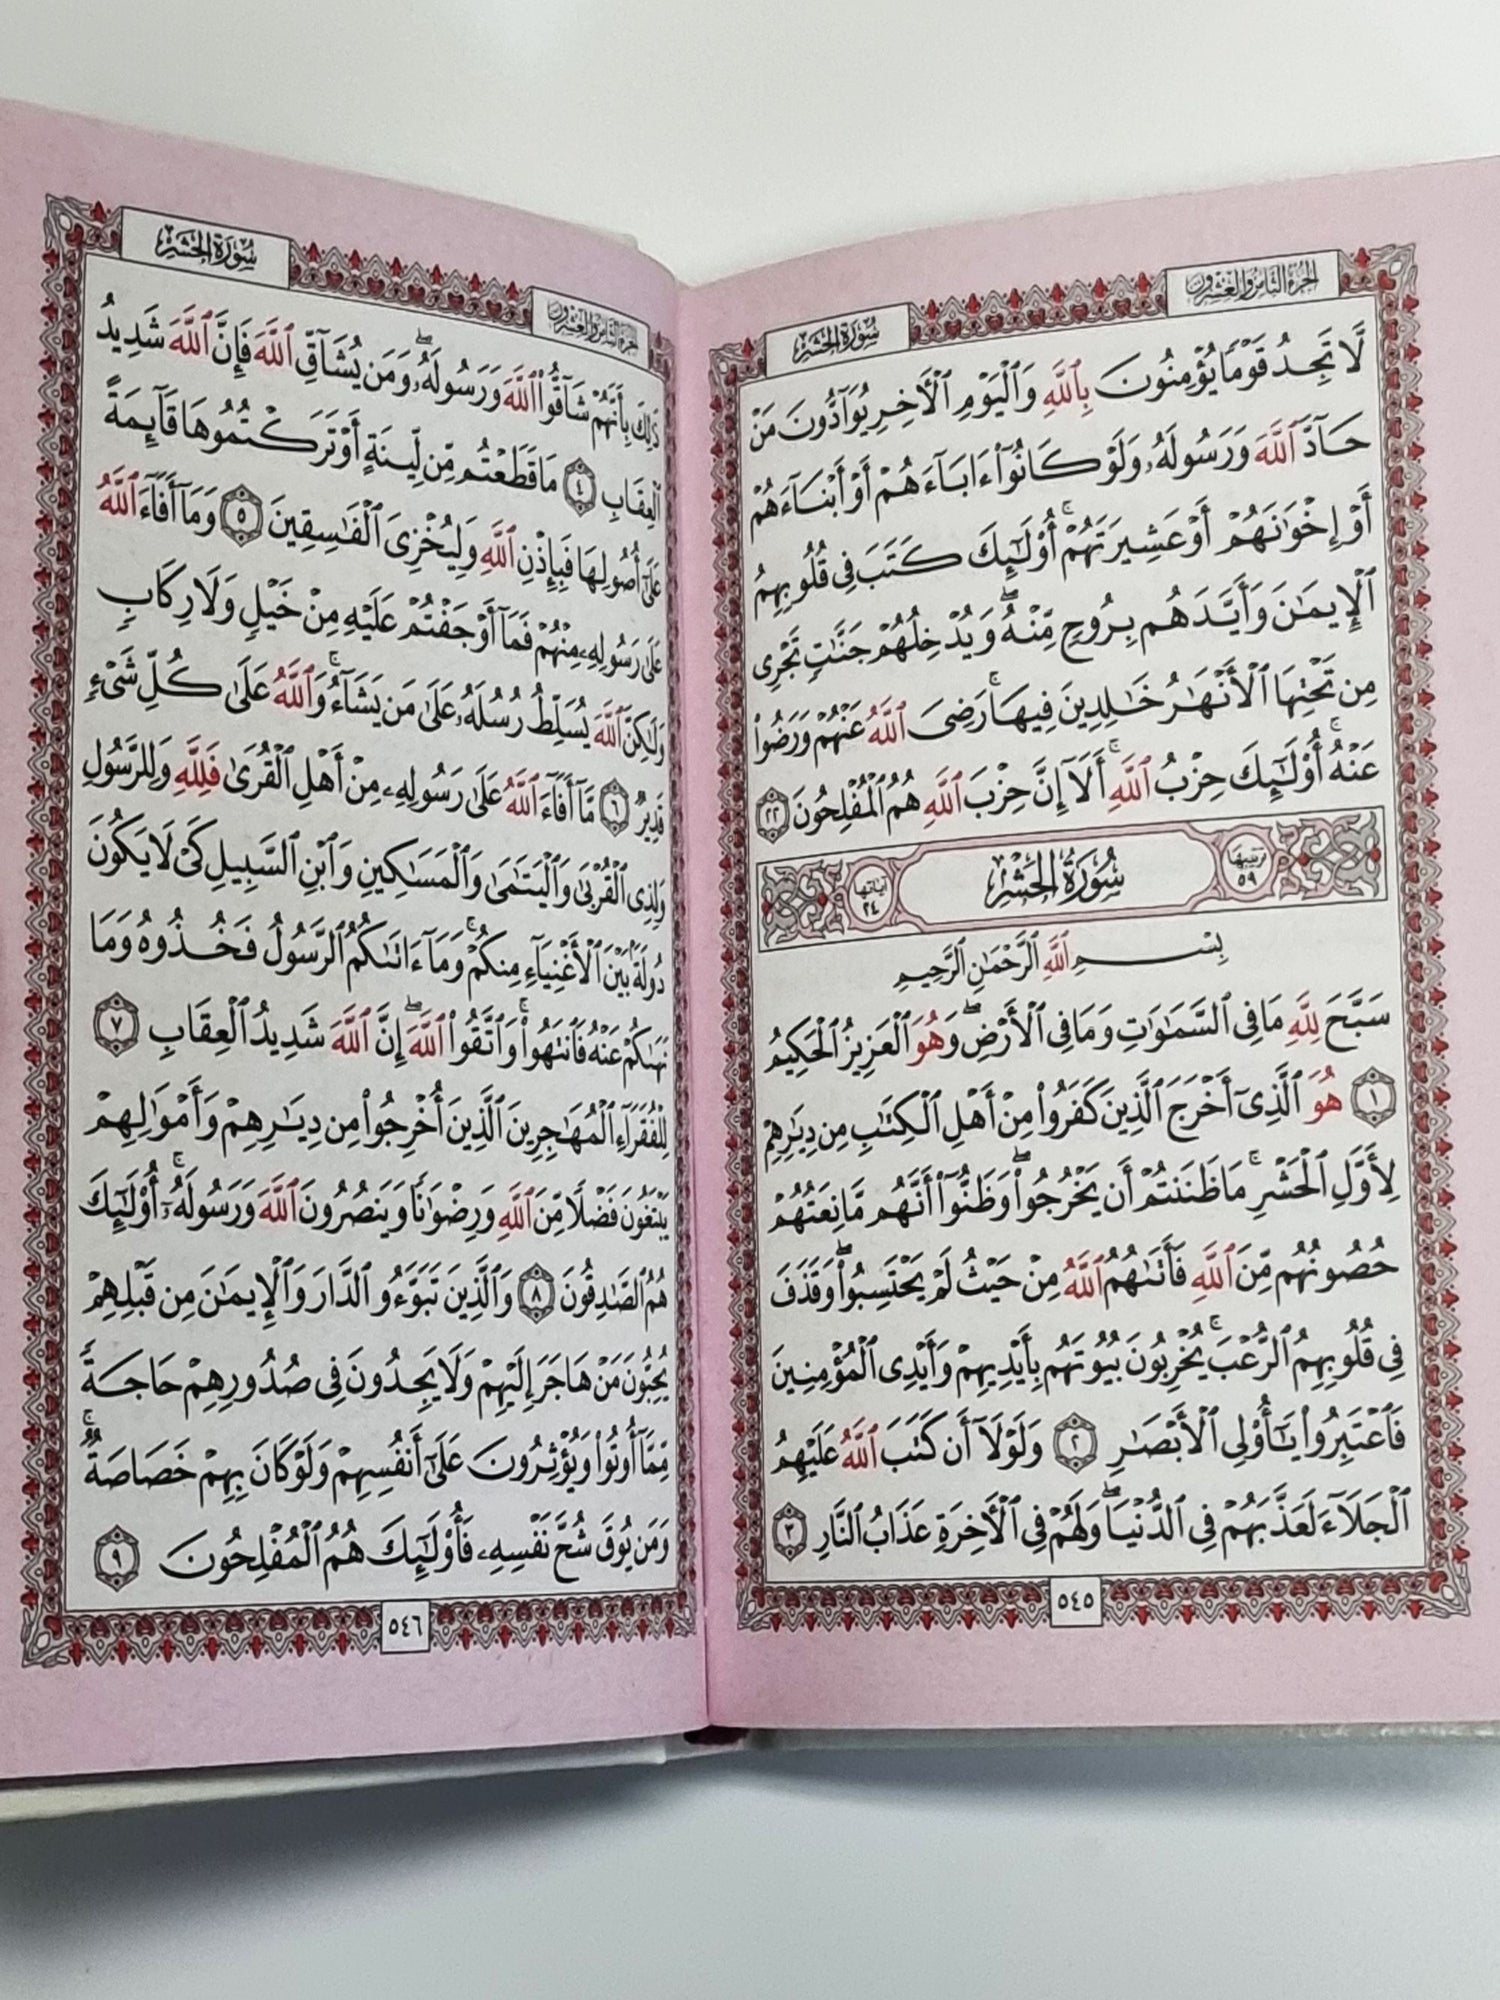 سُورَةُ الحَشْرِ
الجُزْءُ الثَّامِنُ وَالْعِشْرُونَ
لَّا تَجِدُ قَوْمًا يُؤْمِنُونَ بِٱللَّهِ وَٱلْيَوْمِ ٱلْأٓخِرِ يُوَآدُّونَ مَنْ
حَآدَّ ٱللَّهَ وَرَسُولَهُۥ وَلَوْ كَانُوٓا۟ ءَابَآءَهُمْ أَوْ أَبْنَآءَهُمْ
أَوْ إِخْوَٰنَهُمْ أَوْ عَشِيرَتَهُمْ ۚ أُو۟لَٰٓئِكَ كَتَبَ فِى قُلُوبِهِمُ
ٱلْإِيمَٰنَ وَأَيَّدَهُم بِرُوحٍ مِّنْهُ ۖ وَيُدْخِلُهُمْ جَنَّٰتٍ تَجْرِى
مِن تَحْتِهَا ٱلْأَنْهَٰرُ خَٰلِدِينَ فِيهَا ۚ رَضِىَ ٱللَّهُ عَنْهُمْ وَرَضُوا۟
عَنْهُ ۚ أُو۟لَٰٓئِكَ حِزْبُ ٱللَّهِ ۚ أَلَآ إِنَّ حِزْبَ ٱللَّهِ هُمُ ٱلْمُفْلِحُونَ ٢٢
ترتيبها ٥٩ سُورَةُ الحَشْرِ آياتها ٢٤
بِسْمِ ٱللَّهِ ٱلرَّحْمَٰنِ ٱلرَّحِيمِ
سَبَّحَ لِلَّهِ مَا فِى ٱلسَّمَٰوَٰتِ وَمَا فِى ٱلْأَرْضِ ۖ وَهُوَ ٱلْعَزِيزُ ٱلْحَكِيمُ
١ هُوَ ٱلَّذِىٓ أَخْرَجَ ٱلَّذِينَ كَفَرُوا۟ مِنْ أَهْلِ ٱلْكِتَٰبِ مِن دِيَٰرِهِمْ
لِأَوَّلِ ٱلْحَشْرِ ۚ مَا ظَنَنتُمْ أَن يَخْرُجُوا۟ ۖ وَظَنُّوٓا۟ أَنَّهُم مَّانِعَتُهُمْ
حُصُونُهُم مِّنَ ٱللَّهِ فَأَتَىٰهُمُ ٱللَّهُ مِنْ حَيْثُ لَمْ يَحْتَسِبُوا۟ ۖ وَقَذَفَ
فِى قُلُوبِهِمُ ٱلرُّعْبَ ۚ يُخْرِبُونَ بُيُوتَهُم بِأَيْدِيهِمْ وَأَيْدِى ٱلْمُؤْمِنِينَ
فَٱعْتَبِرُوا۟ يَٰٓأُو۟لِى ٱلْأَبْصَٰرِ ٢ وَلَوْلَآ أَن كَتَبَ ٱللَّهُ عَلَيْهِمُ
ٱلْجَلَآءَ لَعَذَّبَهُمْ فِى ٱلدُّنْيَا ۖ وَلَهُمْ فِى ٱلْأٓخِرَةِ عَذَابُ ٱلنَّارِ ٣
٥٤٥
سُورَةُ الحَشْرِ
الجُزْءُ الثَّامِنُ وَالْعِشْرُونَ
ذَٰلِكَ بِأَنَّهُمْ شَآقُّوا۟ ٱللَّهَ وَرَسُولَهُۥ ۖ وَمَن يُشَآقِّ ٱللَّهَ فَإِنَّ ٱللَّهَ شَدِيدُ
ٱلْعِقَابِ ٤ مَا قَطَعْتُم مِّن لِّينَةٍ أَوْ تَرَكْتُمُوهَا قَآئِمَةً
عَلَىٰٓ أُصُولِهَا فَبِإِذْنِ ٱللَّهِ وَلِيُخْزِىَ ٱلْفَٰسِقِينَ ٥ وَمَآ أَفَآءَ ٱللَّهُ
عَلَىٰ رَسُولِهِۦ مِنْهُمْ فَمَآ أَوْجَفْتُمْ عَلَيْهِ مِنْ خَيْلٍ وَلَا رِكَابٍ
وَلَٰكِنَّ ٱللَّهَ يُسَلِّطُ رُسُلَهُۥ عَلَىٰ مَن يَشَآءُ ۚ وَٱللَّهُ عَلَىٰ كُلِّ شَىْءٍ
قَدِيرٌ ٦ مَّآ أَفَآءَ ٱللَّهُ عَلَىٰ رَسُولِهِۦ مِنْ أَهْلِ ٱلْقُرَىٰ فَلِلَّهِ وَلِلرَّسُولِ
وَلِذِى ٱلْقُرْبَىٰ وَٱلْيَتَٰمَىٰ وَٱلْمَسَٰكِينِ وَٱبْنِ ٱلسَّبِيلِ كَىْ لَا يَكُونَ
دُولَةًۢ بَيْنَ ٱلْأَغْنِيَآءِ مِنكُمْ ۚ وَمَآ ءَاتَىٰكُمُ ٱلرَّسُولُ فَخُذُوهُ وَمَا
نَهَىٰكُمْ عَنْهُ فَٱنتَهُوا۟ ۚ وَٱتَّقُوا۟ ٱللَّهَ ۖ إِنَّ ٱللَّهَ شَدِيدُ ٱلْعِقَابِ ٧
لِلْفُقَرَآءِ ٱلْمُهَٰجِرِينَ ٱلَّذِينَ أُخْرِجُوا۟ مِن دِيَٰرِهِمْ وَأَمْوَٰلِهِمْ
يَبْتَغُونَ فَضْلًا مِّنَ ٱللَّهِ وَرِضْوَٰنًا وَيَنصُرُونَ ٱللَّهَ وَرَسُولَهُۥٓ ۚ أُو۟لَٰٓئِكَ
هُمُ ٱلصَّٰدِقُونَ ٨ وَٱلَّذِينَ تَبَوَّءُو ٱلدَّارَ وَٱلْإِيمَٰنَ مِن قَبْلِهِمْ
يُحِبُّونَ مَنْ هَاجَرَ إِلَيْهِمْ وَلَا يَجِدُونَ فِى صُدُورِهِمْ حَاجَةً
مِّمَّآ أُوتُوا۟ وَيُؤْثِرُونَ عَلَىٰٓ أَنفُسِهِمْ وَلَوْ كَانَ بِهِمْ خَصَاصَةٌ ۚ
وَمَن يُوقَ شُحَّ نَفْسِهِۦ فَأُو۟لَٰٓئِكَ هُمُ ٱلْمُفْلِحُونَ ٩
٥٤٦